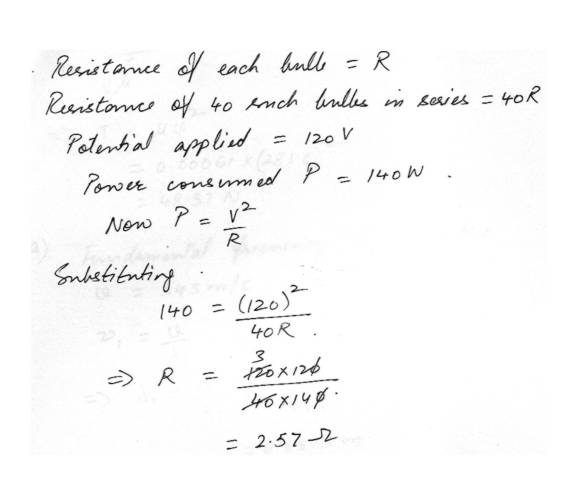 Resistance of each bulb = R
Resistance of 40 such bulbs in series = 40R
Potential applied = 120 V
Power consumed P = 140 W .
Now P = V²/R
Substituting .
140 = (120)²/40R .
⇒ R = 3 120 x 120/40 x 140 .
= 2.57 Ω